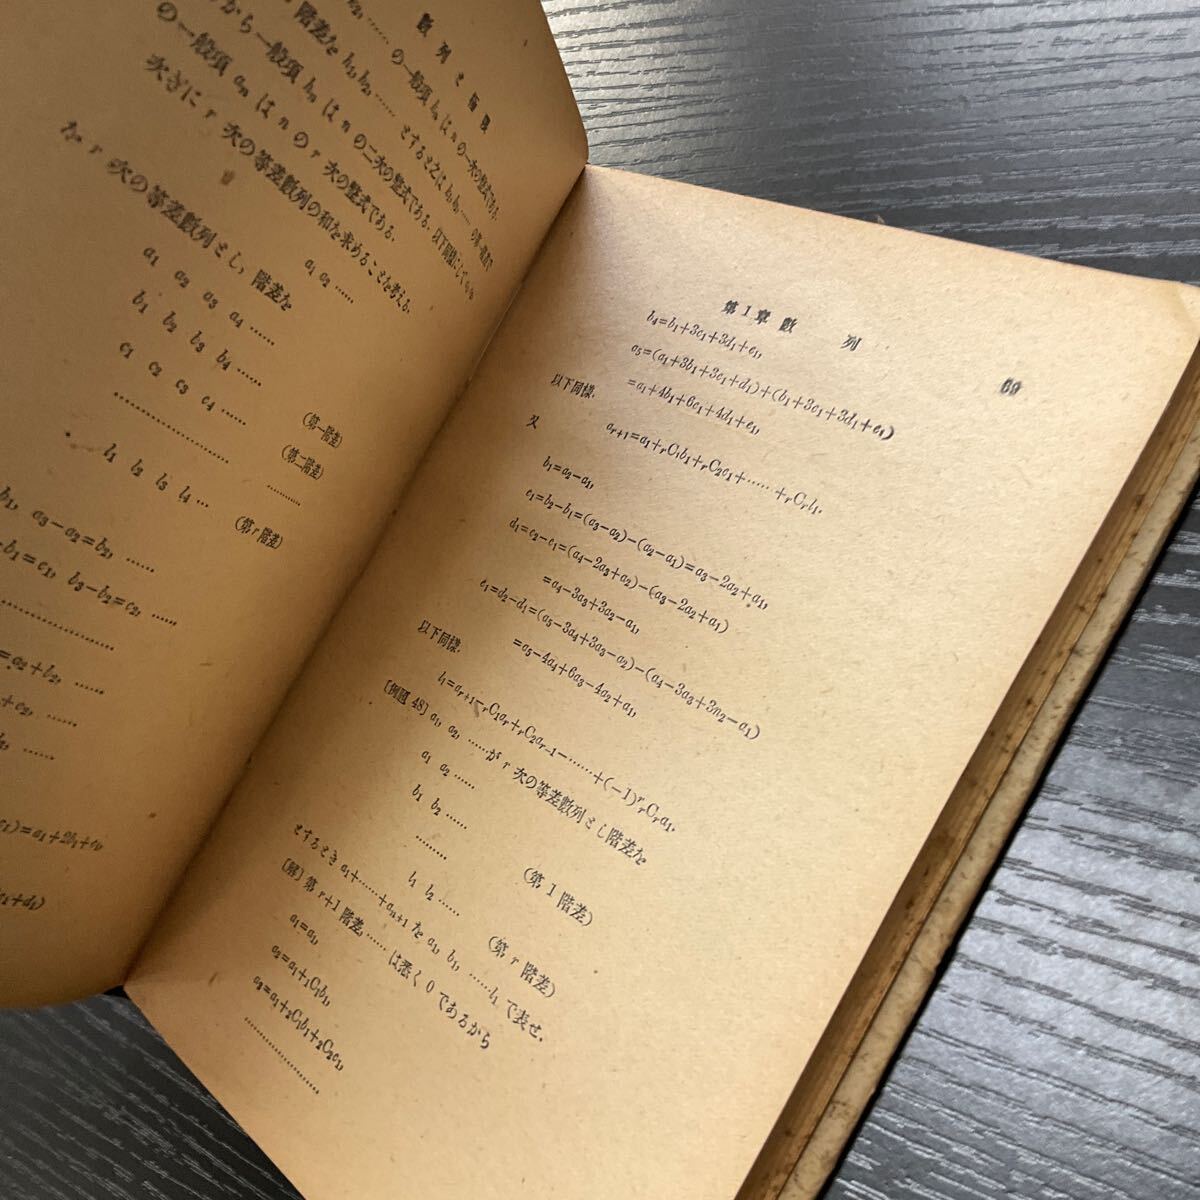 數列と極限
の一般項 bₙ は n の一次の整式である.
階差を b₁, b₂, …… とするとき之は b₁, b₂ ……
から一般項 bₙ は n の二次の整式である. 以下同様にして
の一般項 aₙ は n の r 次の整式である.
次ぎに r 次の等差數列の和を求めることを考える.
a₁ a₂ ……
を r 次の等差數列とし, 階差を
a₁ a₂ a₃ a₄ ……
b₁ b₂ b₃ b₄ …… (第一階差)
c₁ c₂ c₃ c₄ …… (第二階差)
……………………
l₁ l₂ l₃ l₄ … (第 r 階差)
b₁, a₃−a₂=b₂, ……
−b₁=c₁, b₃−b₂=c₂, ……
……………………
=a₂+b₂, ……
+c₂, ……
第1章 數 列 69
b₄=b₁+3c₁+3d₁+e₁,
a₅=(a₁+3b₁+3c₁+d₁)+(b₁+3c₁+3d₁+e₁)
=a₁+4b₁+6c₁+4d₁+e₁,
以下同様.
aᵣ₊₁=a₁+ᵣC₁b₁+ᵣC₂c₁+……+ᵣCᵣl₁.
又
b₁=a₂−a₁,
c₁=b₂−b₁=(a₃−a₂)−(a₂−a₁)=a₃−2a₂+a₁,
d₁=c₂−c₁=(a₄−2a₃+a₂)−(a₃−2a₂+a₁)
=a₄−3a₃+3a₂−a₁,
e₁=d₂−d₁=(a₅−3a₄+3a₃−a₂)−(a₄−3a₃+3a₂−a₁)
=a₅−4a₄+6a₃−4a₂+a₁,
以下同様.
l₁=aᵣ₊₁−ᵣC₁aᵣ+ᵣC₂aᵣ₋₁−……+(−1)ʳᵣCᵣa₁.
[例題 48] a₁, a₂, ……が r 次の等差數列とし階差を
a₁ a₂ ……
b₁ b₂ …… (第 1 階差)
………
l₁ l₂ …… (第 r 階差)
とするとき a₁+……+aₙ₊₁ を a₁, b₁, ……l₁ で表せ.
[解] 第 r+1 階差, …… は悉く 0 であるから
a₁=a₁,
a₂=a₁+₁C₁b₁,
a₃=a₁+₂C₁b₁+₂C₂c₁,
……………………